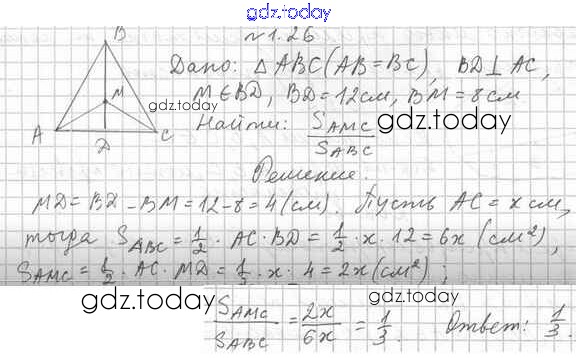 gdz.today
№1.26
B
Дано: △ABC (AB=BC), BD⊥AC,
M
gdz.today
M∈BD, BD=12см, BM=8см
A
C
D
Найти: S_AMC / S_ABC
gdz.today
Решение.
MD=BD-BM=12-8=4(см). Пусть AC=x см,
тогда S_ABC = 1/2 · AC · BD = 1/2 · x · 12 = 6x (см²),
S_AMC = 1/2 · AC · MD = 1/2 · x · 4 = 2x (см²);
gdz.today
gdz.today
S_AMC / S_ABC = 2x / 6x = 1/3. Ответ: 1/3.
gdz.today